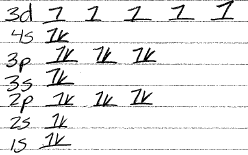 3d 1 1 1 1 1
4s 1k
3p 1k 1k 1k
3s 1k
2p 1k 1k 1k
2s 1k
1s 1k